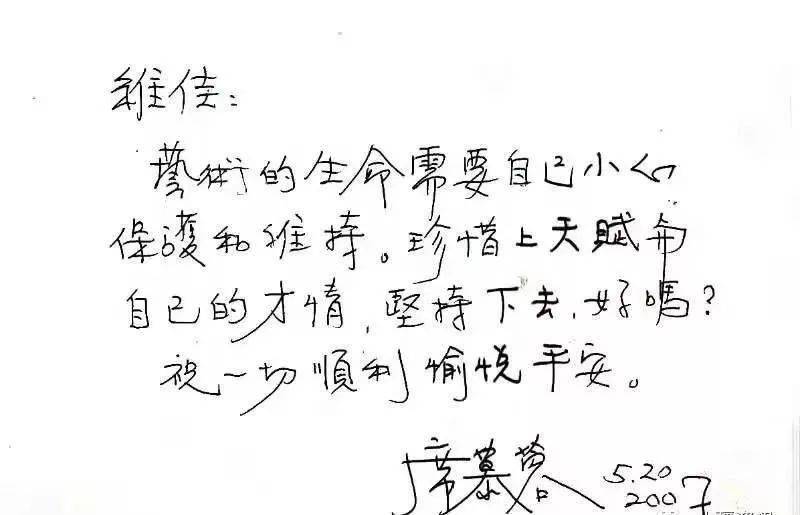 維佳：
藝術的生命需要自己小心
保護和維持。珍惜上天賦與
自己的才情，堅持下去，好嗎？
祝一切順利愉悅平安。
席慕蓉 5.20
2007